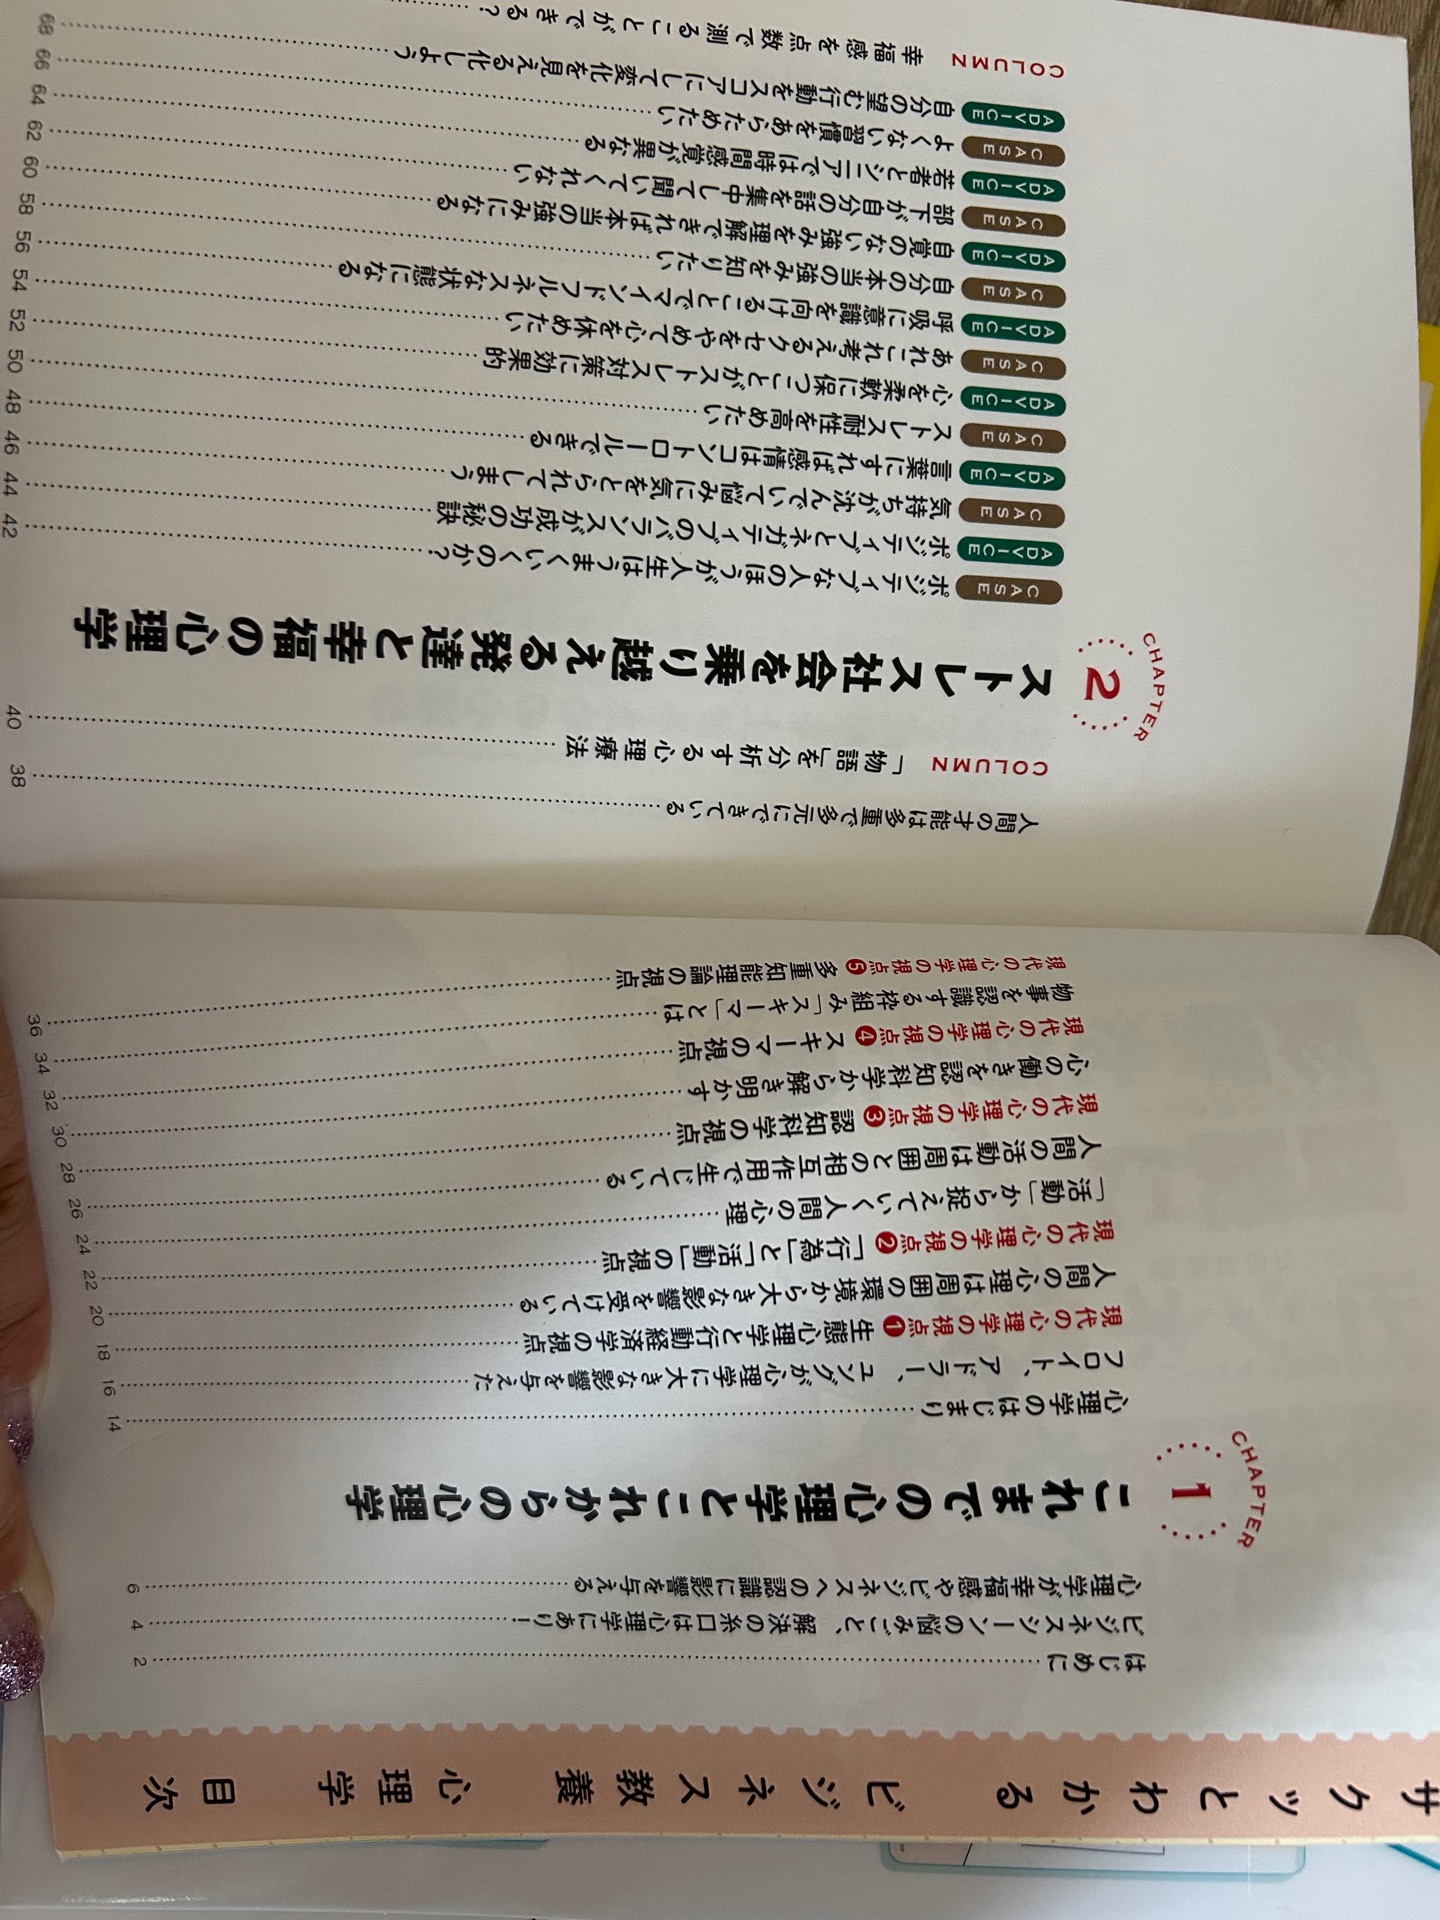 サクッとわかる ビジネス教養 心理学 目次
はじめに……2
ビジネスシーンの悩みごと、解決の糸口は心理学にあり!……4
心理学が幸福感やビジネスへの認識に影響を与える……6
CHAPTER 1 これまでの心理学とこれからの心理学
心理学のはじまり……14
フロイト、アドラー、ユングが心理学に大きな影響を与えた……16
現代の心理学の視点❶ 生態心理学と行動経済学の視点……18
人間の心理は周囲の環境から大きな影響を受けている……20
現代の心理学の視点❷ 「行為」と「活動」の視点……22
「活動」から捉えていく人間の心理……24
人間の活動は周囲との相互作用で生じている……26
現代の心理学の視点❸ 認知科学の視点……28
心の働きを認知科学から解き明かす……30
現代の心理学の視点❹ スキーマの視点……32
物事を認識する枠組み「スキーマ」とは……34
現代の心理学の視点❺ 多重知能理論の視点……36
人間の才能は多重で多元にできている……38
COLUMN 「物語」を分析する心理療法……40
CHAPTER 2 ストレス社会を乗り越える発達と幸福の心理学
CASE ポジティブな人のほうが人生はうまくいくのか?……42
ADVICE ポジティブとネガティブのバランスが成功の秘訣……44
CASE 気持ちが沈んでいて悩みに気をとられてしまう……46
ADVICE 言葉にすれば感情はコントロールできる……48
CASE ストレス耐性を高めたい……50
ADVICE 心を柔軟に保つことがストレス対策に効果的……52
CASE あれこれ考えるクセをやめて心を休めたい……54
ADVICE 呼吸に意識を向けることでマインドフルネスな状態になる……56
CASE 自分の本当の強みを知りたい……58
ADVICE 自覚のない強みを理解できれば本当の強みになる……60
CASE 部下が自分の話を集中して聞いてくれない……62
ADVICE 若者とシニアでは時間感覚が異なる……64
CASE よくない習慣をあらためたい……66
ADVICE 自分の望む行動をスコアにして変化を見える化しよう……68
COLUMN 幸福感を点数で測ることができる?……